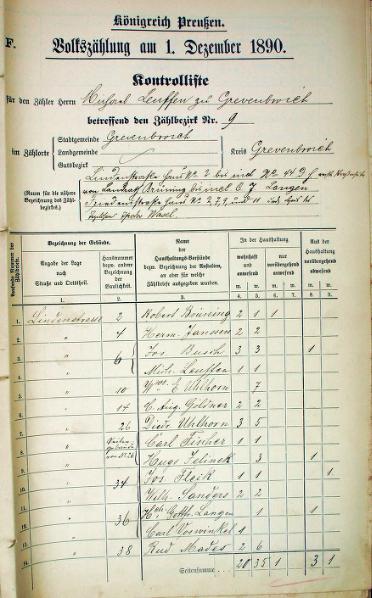 Königreich Preußen.
F. Volkszählung am 1. Dezember 1890.
Kontrolliste
für den Zähler Herrn Michael Leuffen zu Grevenbroich
betreffend den Zählbezirk Nr. 9
im Zählorte Stadtgemeinde Grevenbroich
Landgemeinde Kreis Grevenbroich
Gutsbezirk
Lindenstraße Haus No 2 bis incl. No 44
(Raum für die nähere Bezeichnung des Zählbezirks.) von Landrath Brüning bis incl. Langen
Bezeichnung der Gebäude. Name der Haushaltungs-Vorstände bezw. Bezeichnung der Anstalten, an oder für welche Zählbriefe ausgegeben wurden. In der Haushaltung Aus der Haushaltung
Angabe der Lage nach Straße und Ortstheil. Hausnummer bezw. andere Bezeichnung der Baulichkeit. wohnhaft und anwesend nur vorübergehend anwesend vorübergehend abwesend
m. w. m. w. m. w.
1. 2. 3. 4. 5. 6. 7. 8. 9.
1. Lindenstrasse 2 Robert Brüning 2 1 1
2. " 4 Herm. Janssen 2 2
3. " 6 Jos. Busch 3 3 1
4. " Mich. Leuffen 1 1
5. " 10 Wwe. E. Uhlhorn 7
6. " 14 C. Aug. Göldner 2 2
7. " 26 Diedr. Uhlhorn 3 5
8. " Carl Fischer 1 1
9. " Hugo Jelinek 3 1
10. " 34 Jos. Fleik 1 1 1
11. " Wilh. Sanders 2 2
12. " 36 Gottfr. Langen 1 1
13. " Carl Voswinkel 1
14. " 38 Rud. Mades 2 6
Seitensumme 20 35 1 3 1